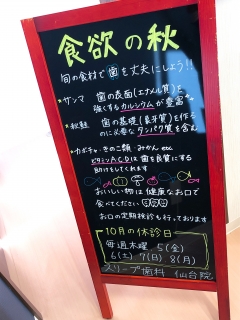 食欲の秋
旬の食材で歯を丈夫にしよう!!
・サンマ 歯の表面(エナメル質)を
強くするカルシウムが豊富。
・秋鮭 歯の基礎(象牙質)を作る
のに必要なタンパク質を含む
・カボチャ・きのこ類・みかん etc
ビタミンACDは歯を良質にする
助けをしてくれます
おいしい物は健康なお口で
食べてください
お口の定期検診も行っております
10月の休診日
毎週木曜 5(金)
6(土) 7(日) 8(月)
スリープ歯科 仙台院